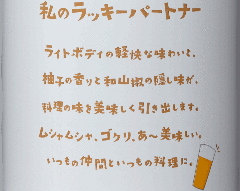 私のラッキーパートナー
ライトボディの軽快な味わいと、
柚子の香りと和山椒の隠し味が、
料理の味を美味しく引き出します。
ムシャムシャ、ゴクリ、あ〜美味しい。
いつもの仲間といつもの料理に。